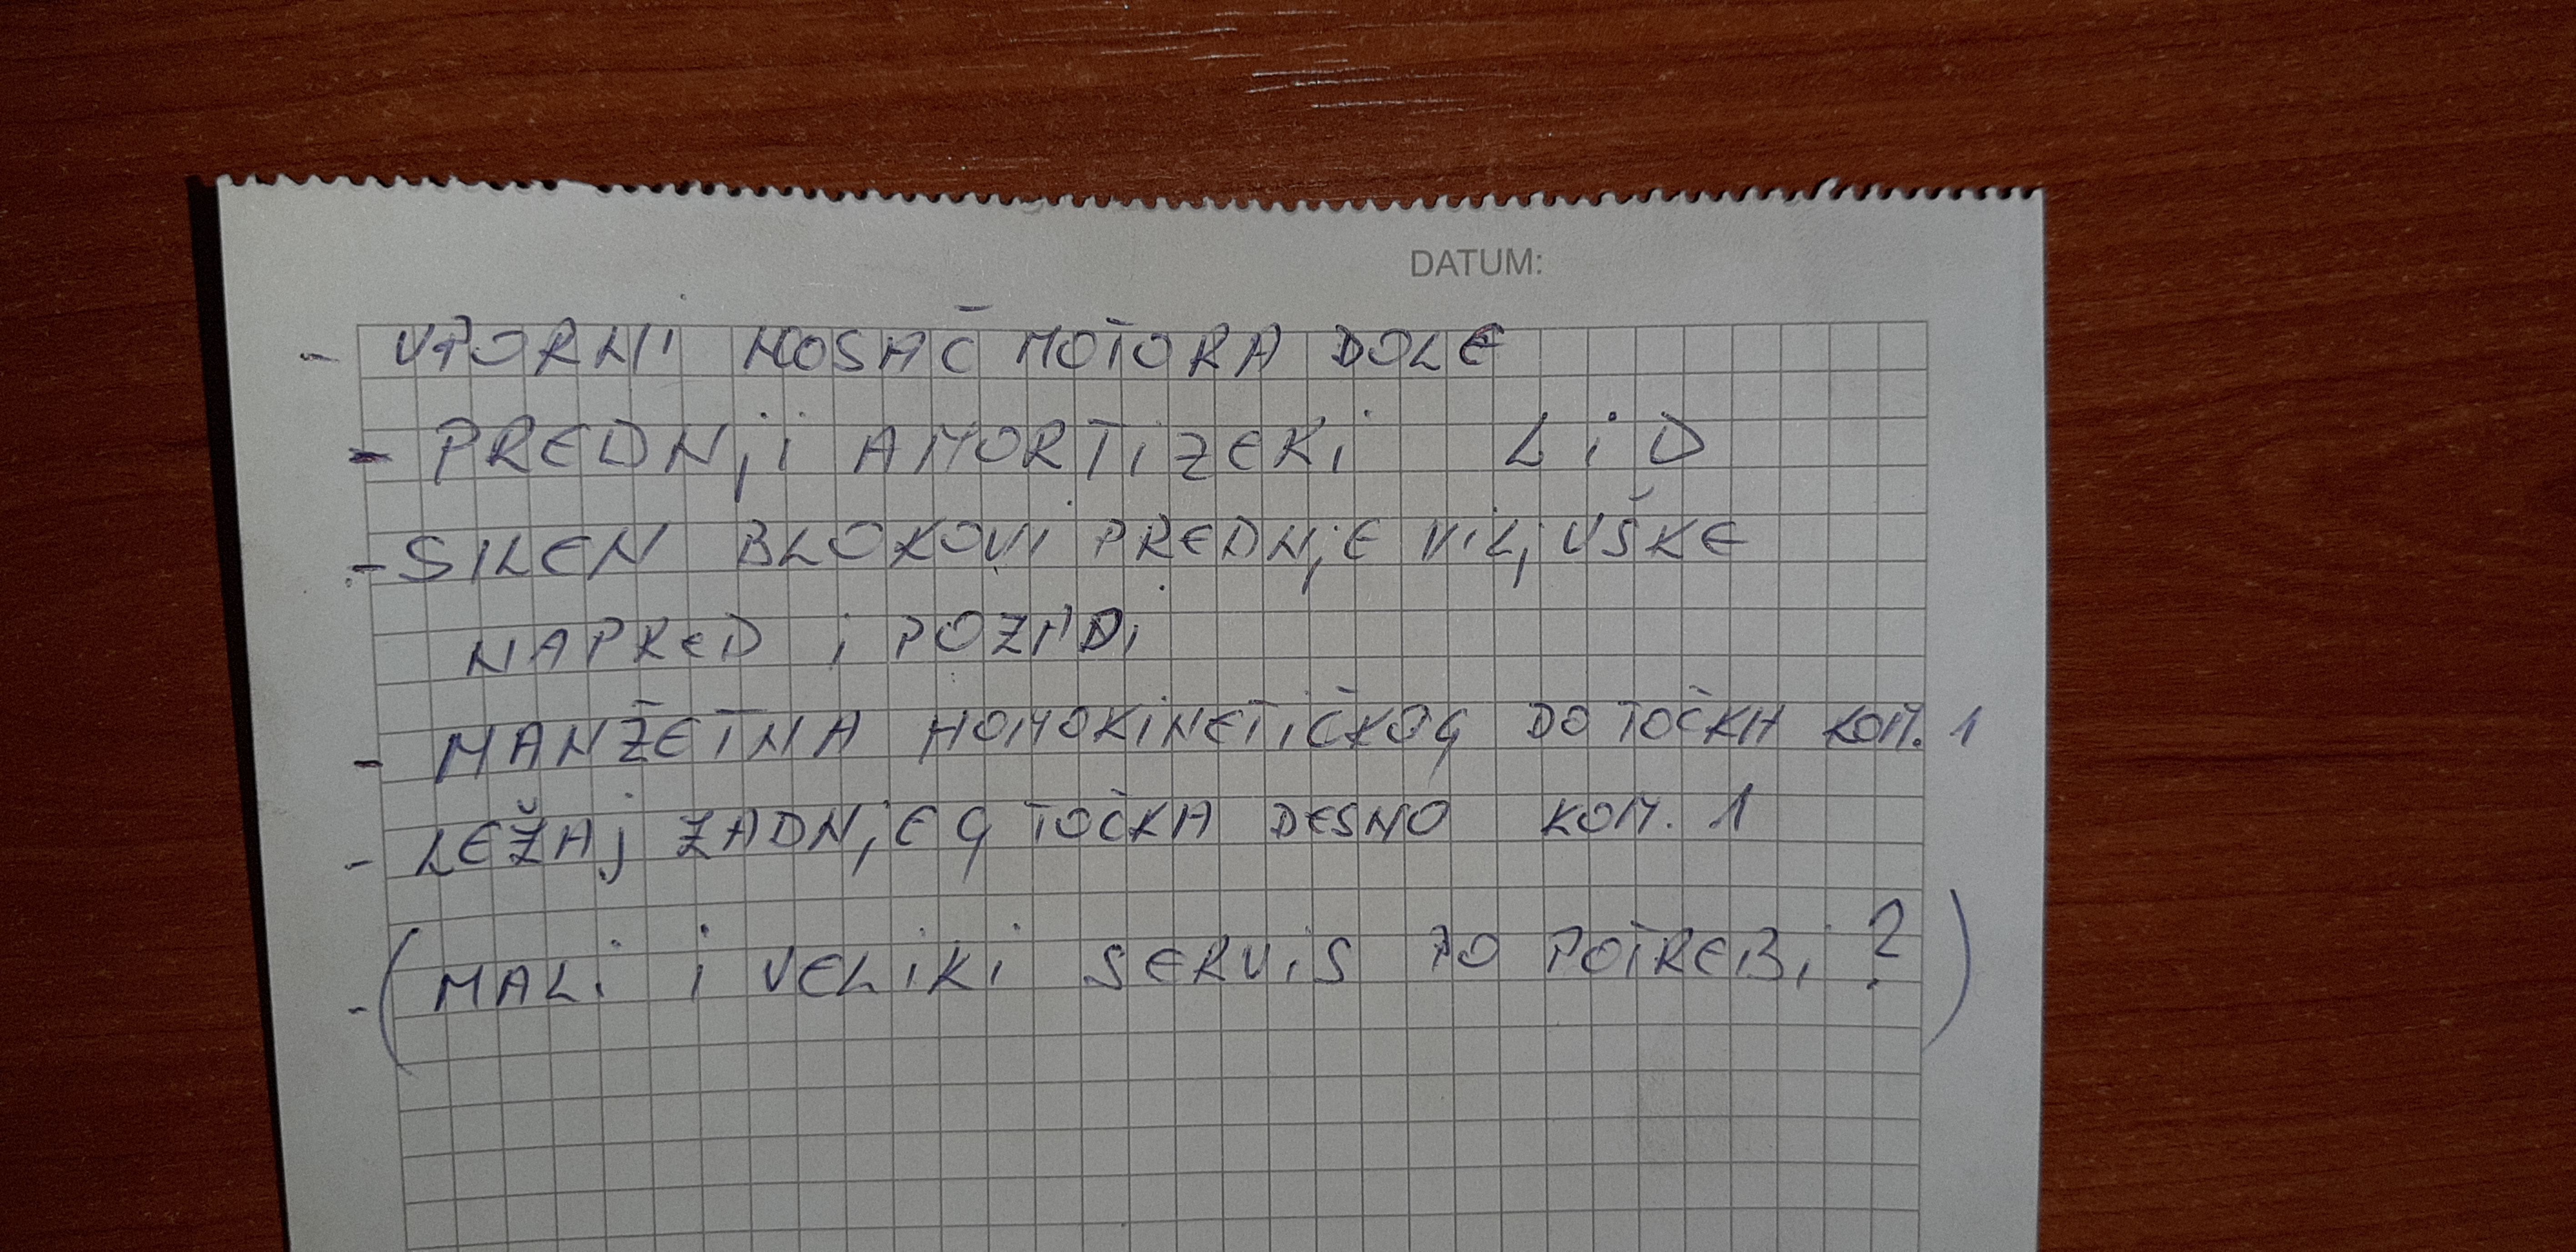 DATUM:
- UPORNI NOSAČ MOTORA DOLE
- PREDNji AMORTiZERi L i D
- SILEN BLOKOVI PREDNjE ViLjUŠKE
NAPRED i POZADi
- MANŽETNA HOMOKiNETiČKOG DO TOČKA KOM. 1
- LEŽAj ZADNjEG TOČKA DESNO KOM. 1
- (MALi i VELiKi SERViS PO POTREBi ?)